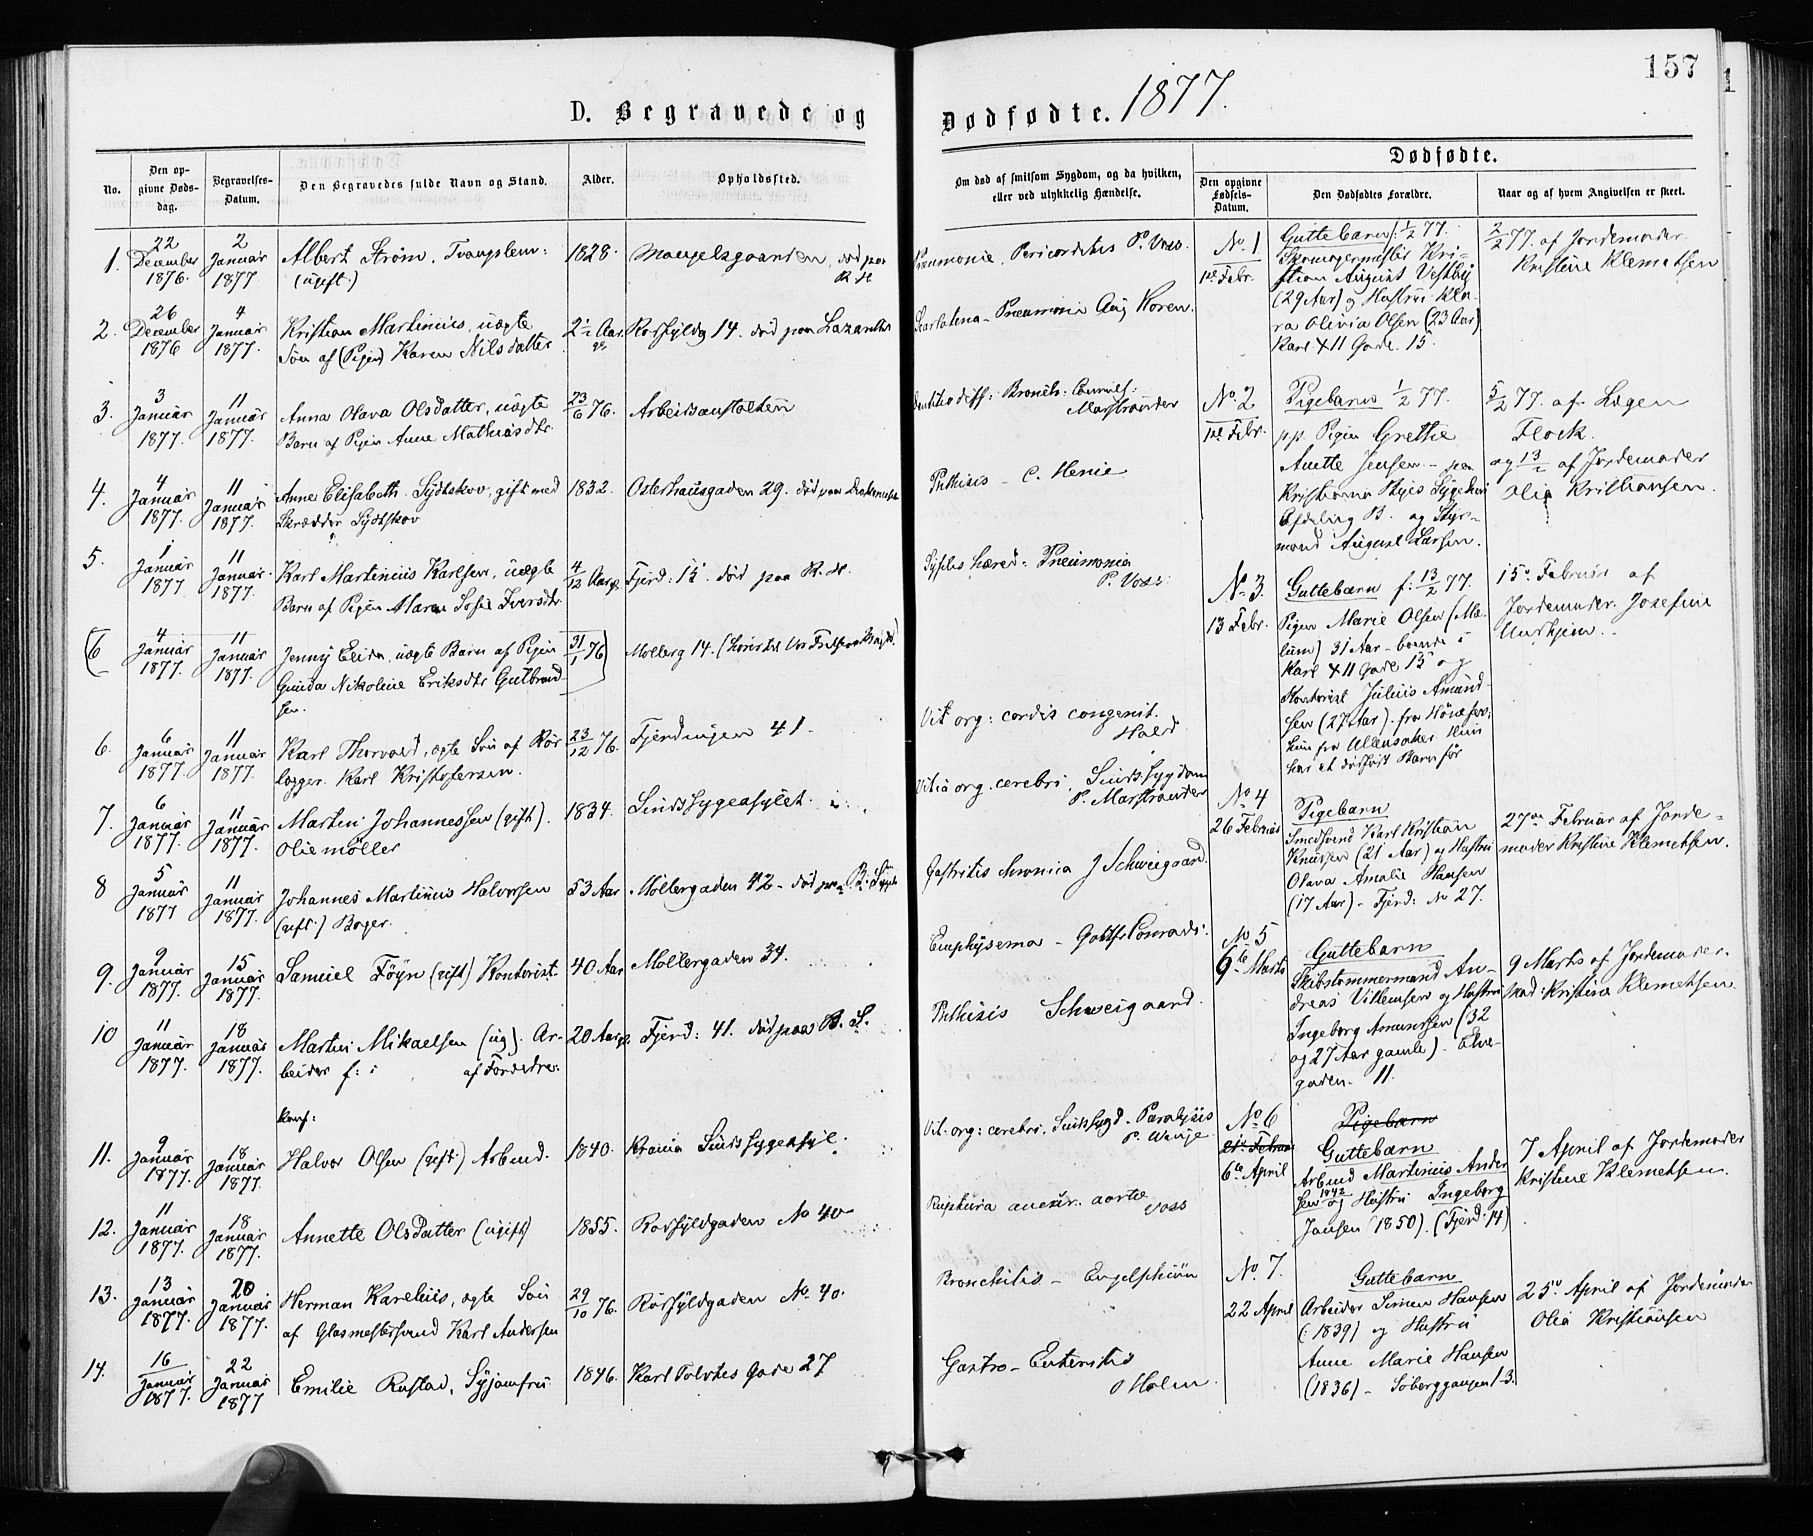 157
D. Begravede og Dødfødte. 1877.
No.
Den opgivne Dødsdag.
Begravelses-Datum.
Den Begravedes fulde Navn og Stand.
Alder.
Opholdssted.
Om død af smitsom Sygdom, og da hvilken, eller ved ulykkelig Hændelse.
Dødfødte.
Den opgivne Fødsels-Datum.
Den Dødfødtes Forældre.
Naar og af hvem Angivelsen er skeet.
1. 22 December 1876. 2 Januar 1877. Albert Strøm, 1828. død paa R.H.
(ugift.)
Pneumonie, Pericarditis P. Voss.
2. 26 December 1876 4 Januar 1877. Kristian Martinius, uægte 2½ Aar. 14. død paa Lazarethet
Søn af (Pigen) Karen Nilsdatter
Scarlatina - Pneumonia Aug Koren.
3. 3 Januar 1877. 11 Januar 1877. Anna Olava Olsdatter, uægte 23/6 76. Arbeidsanstalten
Barn af Pigen Anne Mathiasdtr.
Marstrander
4. 4 Januar 1877. 11 Januar 1877. Anne Elisabeth Sydtskov, gift med 1832. Osterhausgaden 29.
Skrædder Sydtskov
Phthisis - C. Henie
5. 1 Januar 1877. 11 Januar 1877. Karl Martinius Karlsen, uægte 4/12 Aar Fjerd: 15. død paa R.H.
Barn af Pigen Maren Sofie Iversdtr.
Syfilis hæred: Pneumonia
P. Voss.
(6 4 Januar 1877. 11 Januar 1877. Jenny Elida, uægte Barn af Pigen 31/1 76) Mollerg 14.
Gunda Nikoline Eriksdtr Gulbrand-
sen.
6. 6 Januar 1877. 11 Januar 1877. Karl Thorvald, ægte Søn af Rør- 23/12 76. Fjerdingen 41.
lægger Karl Kristofersen.
Vit. org: cordis congenit.
Hald
7. 6 Januar 1877. 11 Januar 1877. Martin Johannessen (gift). 1834. Sindssygeasylet
Oliemøller
Vitia org. cerebri, Sindssygdom
P. Marstrander
8 5 Januar 1877 11 Januar 1877. Johannes Martinius Halvorsen 53 Aar Møllergaden 42 - død paa
(gift.) Bager.
Gastritis chronica J Schweigaard.
9. 9 Januar 1877. 15 Januar 1877. Samuel Føyn (gift) Kontorist. 40 Aar Mollergaden 34.
Emphysema -
10 11 Januar 1877. 18 Januar 1877. Martin Mikaelsen (ug). Ar- 20 Aar Fjerd: 41. død paa B.S.
beider f: i af Forældre:
Phthisis Schweigaard.
Konf:
11. 9 Januar 1877. 18 Januar 1877. Halvor Olsen (gift.) Arbmd. 1840. Krania Sindssygeasyl.
Vit. org: cerebri. Sindssygd - Paralysis
P. Winge
12. 11 Januar 1877. 18 Januar 1877. Annette Olsdatter (ugift) 1855. Rørfyldgaden No 40
Ruptura aneur. aortæ
Voss
13. 13 Januar 1877. 20 Januar 1877. Herman Karelius, ægte Søn 29/10 76. Rørfyldgaden No. 40.
af Glasmestersvend Karl Andersen
Bronchitis - Engelskjøn
14. 16 Januar 1877. 22 Januar 1877 Emilie Rustad, Syjomfru 1846. Karl Tolvtes Gade 27
Gastro - Enteritis
Holm.
No. 1
1ste Febr.
Guttebarn f. 1/2 77.
Skomagermester Kri-
stian August Vestby
(29 Aar) og Hustru Kla-
ra Olivia Olsen (23 Aar)
Karl XII Gade. 15.
2/2 77. af Jordemoder
Kristine Klemetsen
No. 2
1ste Febr.
Pigebarn 1/2 77.
pp. Pigen Grethe
Anette Jensen - paa
Kristiania Byes Sygehus
Afdeling B. og Styr-
mand August Larsen.
5/2 77. af Lægen
Flock.
og 13/2 af Jordemoder
Olia Kristiansen.
No. 3.
13 Febr.
Guttebarn f: 13/2 77.
Pigen Marie Olsen (Ma-
lum) 31 Aar - boende i
Karl XII Gade 15 og
Kontorist Julius Amund-
sen (27 Aar). fra Hønefos,
hun fra Ullensaker. Hun
har et dødfødt Barn før
15de Februar af
Jordemoder Josefine
No. 4
26 Februar
Pigebarn
Smedsvend Karl Kristian
Knutsen (21 Aar) og Hustru
Olava Amalie Hansen
(17 Aar) - Fjerd: No 27.
27de Februar af Jorde-
moder Kristine Klemetsen.
No 5
9de Marts
Guttebarn
Skibstømmermand An-
dreas Villemsen og Hustru
Ingeborg Amundsen (32
og 27 Aar gamle) - Elve-
gaden 11.
9 Marts af Jordemoder
Kristine Klemetsen.
No 6
6te April
Pigebarn
Guttebarn
Arbmd Martinius Ander-
sen 1842 og Hustru Ingeborg
Jansen (1850). (Fjerd: 14)
7 April af Jordemoder
Kristine Klemetsen.
No. 7.
22 April
Guttebarn
Arbeider Simen Hansen
(1839) og Hustru
Anne Marie Hansen
(1836) -
25de April af Jordemoder
Olia Kristiansen